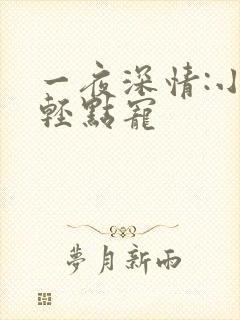 一夜深情:小
輕點寵
夢月新雨